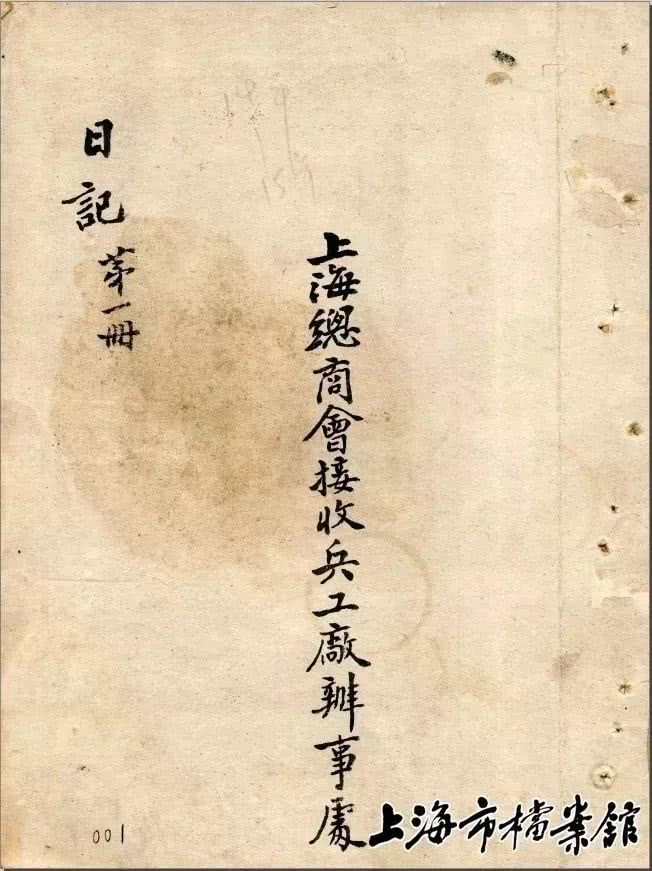 上海總商會接收兵工廠辦事處
日記 第一冊
001
上海市檔案館